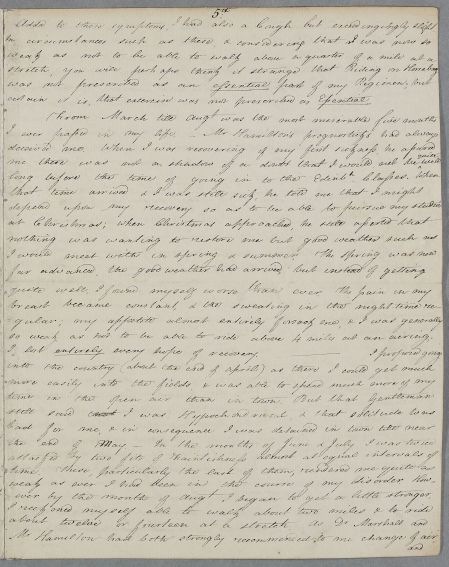 5th
Added to these symptoms I had also a Cough but exceedingly slight
In circumstances such as these, & considering that I was now so
weak as not to be able to walk above a quarter of a mile at a
stretch, you will perhaps think it strange that Riding on Horseback
was not prescribed as an essential part of my Regimen, but
certain it is, that exercise was not prescribed as Essential.
From March till Augt was the most miserable five months
I ever passed in my life. Mr Hamilton's prognosticks had always
deceived me. When I was recovering of my first sickness he assured
me there was not a shadow of a doubt that I would be quite well
long before the time of going in to the Edinr Classes. When
that time arrived & I was still sick, he told me that I might
depend upon my recovery so as to be able to pursue my studies
at Christmas; when Christmas approached he still asserted that
nothing was wanting to restore me but good weather such as
I would meet with in spring & summer. The spring was now
far advanced, the good weather had arrived but instead of getting
quite well, I found myself worse than ever the pain in my
breast became constant & the sweating in the night time re-
gular; my appetite almost entirely forsook me, & I was generally
so weak as not to be able to ride above 4 miles at an airing.
I lost entirely every hope of recovery. I proposed going
into the country (about the end of April) as there I could get much
more easily into the fields & was able to spend much more of my
time in the open air than in town. But that Gentleman
still said I was Hypochondriack & that solitude was
bad for me, & in consequence I was detained in town till near
the end of May — In the months of June & July I was twice
attacked by two fits of faintishness almost at equal intervals of
time. These, particularly the last of them, rendered me quite as
weak as ever I had been in the course of my disorder. How-
ever by the month of Augt I began to get a little stronger.
I reckoned myself able to walk about two miles & to ride
about twelve or fourteen at a stretch. As Dr Marshall and
Mr Hamilton had both strongly recommended to me change of air
and